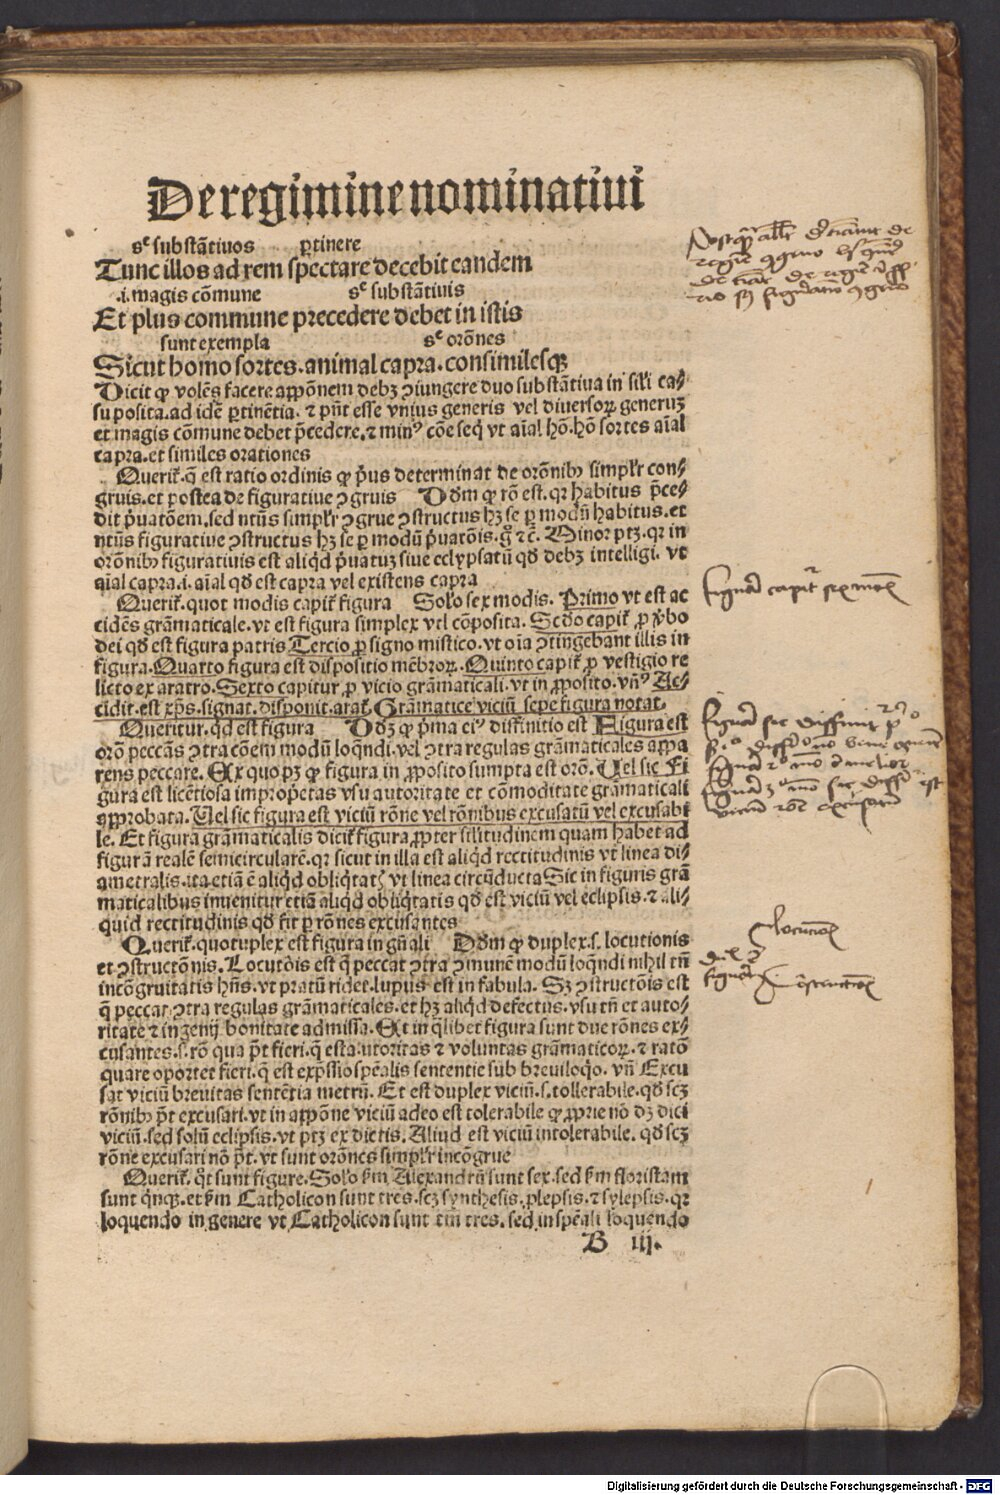 De regimine nominatiui
sꝫ substātiuos ꝑtinere
Tunc illos ad rem spectare decebit eandem
.i. magis cōmune sꝫ substātiuis
Et plus commune precedere debet in istis
sunt exempla sꝫ orōnes
Sicut homo sortes. animal capra. consimilesqꝫ
Dicit ꝙ volēs facere appōnem debꝫ ꝯiungere duo substātiua in sili ca⸗
su posita. ad idē ꝑtinētia. ⁊ pn̄t esse vnius generis vel diuersoꝝ generuꝫ
et magis cōmune debet p̄cedere. ⁊ minꝰ cōe seq̄ vt aīal hō. hō sortes aīal
capra. et similes orationes
Querit̄. q̄ est ratio ordinis ꝙ p̄us determinat de orōnibꝫ simpl̓r con⸗
gruis. et postea de figuratiue ꝯgruis Dōm ꝙ rō est. qꝛ habitus p̄ce⸗
dit p̄uatōem. sed ntūs simpl̓r ꝯgrue ꝯstructus hꝫ se ꝑ modū habitus. et
ntūs figuratiue ꝯstructus hꝫ se ꝑ modū p̄uatōis. gͦ ⁊c̄. Minor ptꝫ. qꝛ in
orōnibꝫ figuratiuis est aliqd̓ p̄uatuꝫ siue eclypsatū qd̓ debꝫ intelligi. vt
aīal capra. i. aīal qd̓ est capra vel existens capra
Querit̄. quot modis capit̄ figura Solo sex modis. Primo vt est ac
cidēs grāmaticale. vt est figura simplex vel cōposita. Scdo capit̄ ꝓ v̓bo
dei qd̓ est figura patris Tercio ꝑ signo mistico. vt oīa ꝯtingebant illis in
figura. Quarto figura est dispositio mēbroꝝ. Quinto capit̄ ꝓ vestigio re
licto ex aratro. Sexto capitur ꝓ vicio grāmaticali. vt in ꝓposito. vn̄ꝰ Ac⸗
cidit. est xp̄s. signat. disponit. arat. Grāmatice viciū sepe figura notat.
Queritur. qd̓ est figura Dōꝫ ꝙ p̄ma eiꝰ diffinitio est Figura est
orō peccās ꝯtra cōem modū loq̄ndi. vel ꝯtra regulas grāmaticales appa
rens peccare. Ex quo pꝫ ꝙ figura in ꝓposito sumpta est orō. Uel sic Fi
gura est licētiosa impropetas vsu autoritate et cōmoditate gramaticali
approbata. Uel sic figura est viciū rōne vel rōnibus excusatū vel excusabi
le. Et figura grāmaticalis dicit̄ figura ꝓpter silitudinem quam habet ad
figurā realē semicircularē. qꝛ sicut in illa est aliqd̓ rectitudinis vt linea di⸗
ametralis. ita etiā ē aliqd̓ obliqtatꝭ vt linea circūducta Sic in figuris grā
maticalibus inuenitur etiā aliqd̓ obliqtatis qd̓ est viciū vel eclipsis. ⁊ ali⸗
quid rectitudinis qd̓ fit ꝑ rōnes excusantes
Querit̄. quotuplex est figura in gn̄ali Dōm ꝙ duplex. s. locutionis
et ꝯstructōnis. Locutōis est q̄ peccat ꝯtra ꝯmunē modū loq̄ndi nihil tn̄
incōgruitatis hn̄s. vt pratū ridet. lupus est in fabula. Sꝫ ꝯstructōis est
q̄ peccat ꝯtra regulas grāmaticales. et hꝫ aliqd̓ defectus. vsu tn̄ et auto⸗
ritate ⁊ ingenij bonitate admissa. Et in q̄libet figura sunt due rōnes ex⸗
cusantes. s. rō qua p̄t fieri. q̄ est autoritas ⁊ voluntas grāmaticoꝝ. ⁊ ratō
quare oportet fieri. q̄ est exp̄ssio spēalis sententie sub breuiloqo. vn̄ Excu
sat viciū breuitas sentētia metrū. Et est duplex viciū. s. tollerabile. qd̓ scꝫ
rōnibꝫ p̄t excusari. vt in appōne viciū adeo est tolerabile ꝙ ꝓprie nō dꝫ dici
viciū. sed solū eclipsis. vt ptꝫ ex dictis. Aliud est viciū intolerabile. qd̓ scꝫ
rōne excusari nō p̄t. vt sunt orōnes simpl̓r incōgrue
Querit̄. qt̓ sunt figure. Solo fm̄ Alexandrū sunt sex. sed fm̄ floristam
sunt q̄nqꝫ. et fm̄ Catholicon sunt tres. scꝫ synthesis. ꝓlepsis. ⁊ sylepsis. qꝛ
loquendo in genere vt Catholicon sunt tm̄ tres. sed in spēali loquendo
B iij.
locucionis
Digitalisierung gefördert durch die Deutsche Forschungsgemeinschaft - DFG